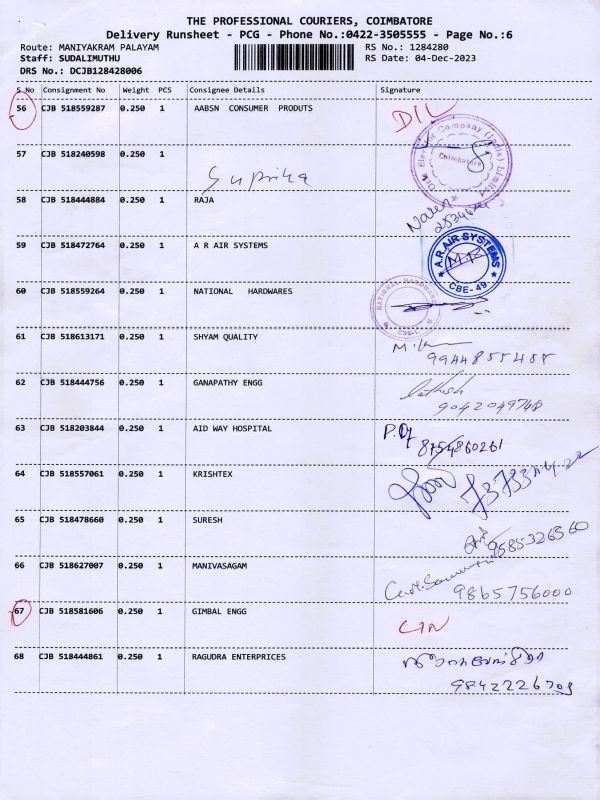 THE PROFESSIONAL COURIERS, COIMBATORE
Delivery Runsheet - PCG - Phone No.:0422-3505555 - Page No.:6
Route: MANIYAKRAM PALAYAM RS No.: 1284280
Staff: SUDALIMUTHU RS Date: 04-Dec-2023
DRS No.: DCJB128428006
S No Consignment No Weight PCS Consignee Details Signature
56 CJB 518559287 0.250 1 AABSN CONSUMER PRODUTS
Coimbatore
57 CJB 518240598 0.250 1
Supriha
58 CJB 518444884 0.250 1 RAJA
59 CJB 518472764 0.250 1 A R AIR SYSTEMS
A.R AIR SYSTEMS
CBE- 49
60 CJB 518559264 0.250 1 NATIONAL HARDWARES
NATIONAL HARDWARES
61 CJB 518613171 0.250 1 SHYAM QUALITY
62 CJB 518444756 0.250 1 GANAPATHY ENGG
Sathish
9042049748
63 CJB 518203844 0.250 1 AID WAY HOSPITAL
8754860261
64 CJB 518557061 0.250 1 KRISHTEX
65 CJB 518478660 0.250 1 SURESH
9585326560
66 CJB 518627007 0.250 1 MANIVASAGAM
9865756000
67 CJB 518581606 0.250 1 GIMBAL ENGG
68 CJB 518444861 0.250 1 RAGUDRA ENTERPRICES
9842226709